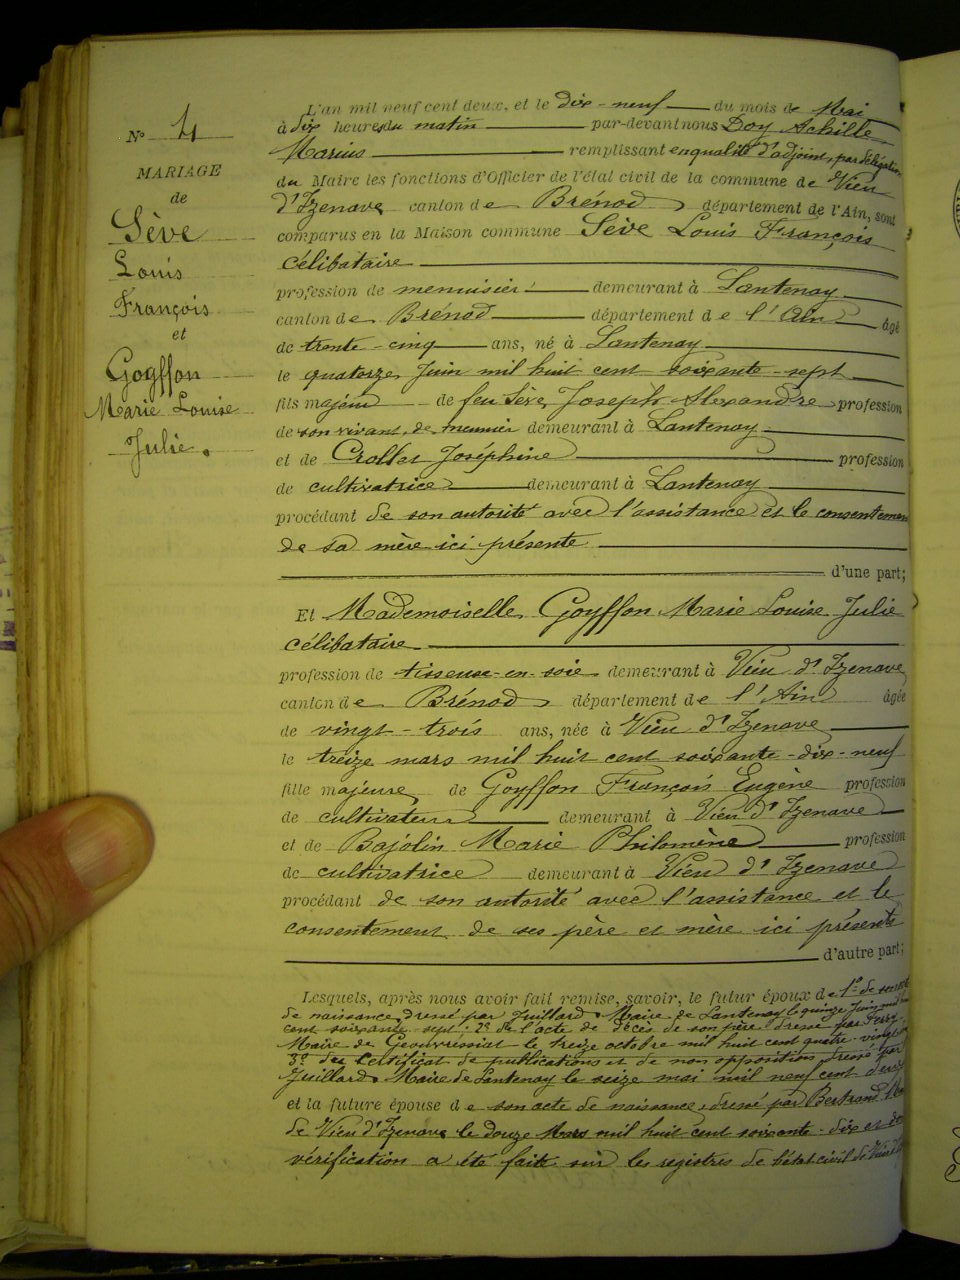 N° 4
MARIAGE
de
Sève
Louis
François
et
Goyffon
Marie Louise
Julie.
L'an mil neuf cent deux, et le dix-neuf du mois de Mai
à dix heures du matin par-devant nous Doy Achille
Marius remplissant en qualité d'adjoint, par délégation
du Maire les fonctions d'Officier de l'état civil de la commune de Vieu
d'Izenave canton de Brénod département de l'Ain, sont
comparus en la Maison commune Sève Louis François
célibataire
profession de menuisier demeurant à Lantenay
canton de Brénod département de l'Ain âgé
de trente-cinq ans, né à Lantenay
le quatorze Juin mil huit cent soixante-sept
fils majeur de feu Sève Joseph Alexandre profession
de son vivant de meunier demeurant à Lantenay
et de Crollet Joséphine profession
de cultivatrice demeurant à Lantenay
procédant de son autorité avec l'assistance et le consentement
de sa mère ici présente
d'une part;
Et Mademoiselle Goyffon Marie Louise Julie
célibataire
profession de tisseuse-en-soie demeurant à Vieu d'Izenave
canton de Brénod département de l'Ain âgée
de vingt-trois ans, née à Vieu d'Izenave
le treize mars mil huit cent soixante-dix-neuf
fille majeure de Goyffon François Eugène profession
de cultivateur demeurant à Vieu d'Izenave
et de Bajolin Marie Philomène profession
de cultivatrice demeurant à Vieu d'Izenave
procédant de son autorité avec l'assistance et le
consentement de ses père et mère ici présents
d'autre part;
Lesquels, après nous avoir fait remise, savoir, le futur époux de 1° de son acte
de naissance dressé par Juillard Maire de Lantenay le quinze Juin mil huit
cent soixante-sept: 2° de l'acte de décès de son père dressé par Ferry
Maire de Geovressiat le treize octobre mil huit cent quatre-vingt
3° du Certificat de publications et de non opposition dressé par
Juillard Maire de Lantenay le seize mai mil neuf cent deux
et la future épouse de son acte de naissance, dressé par Bertrand
de Vieu d'Izenave le douze Mars mil huit cent soixante-dix et dont
vérification a été faite sur les registres de l'état civil de Vieu d'